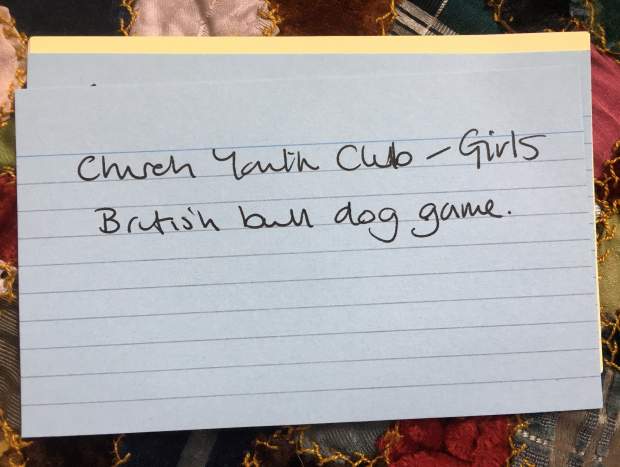 Church Youth Club – Girls
British bull dog game.